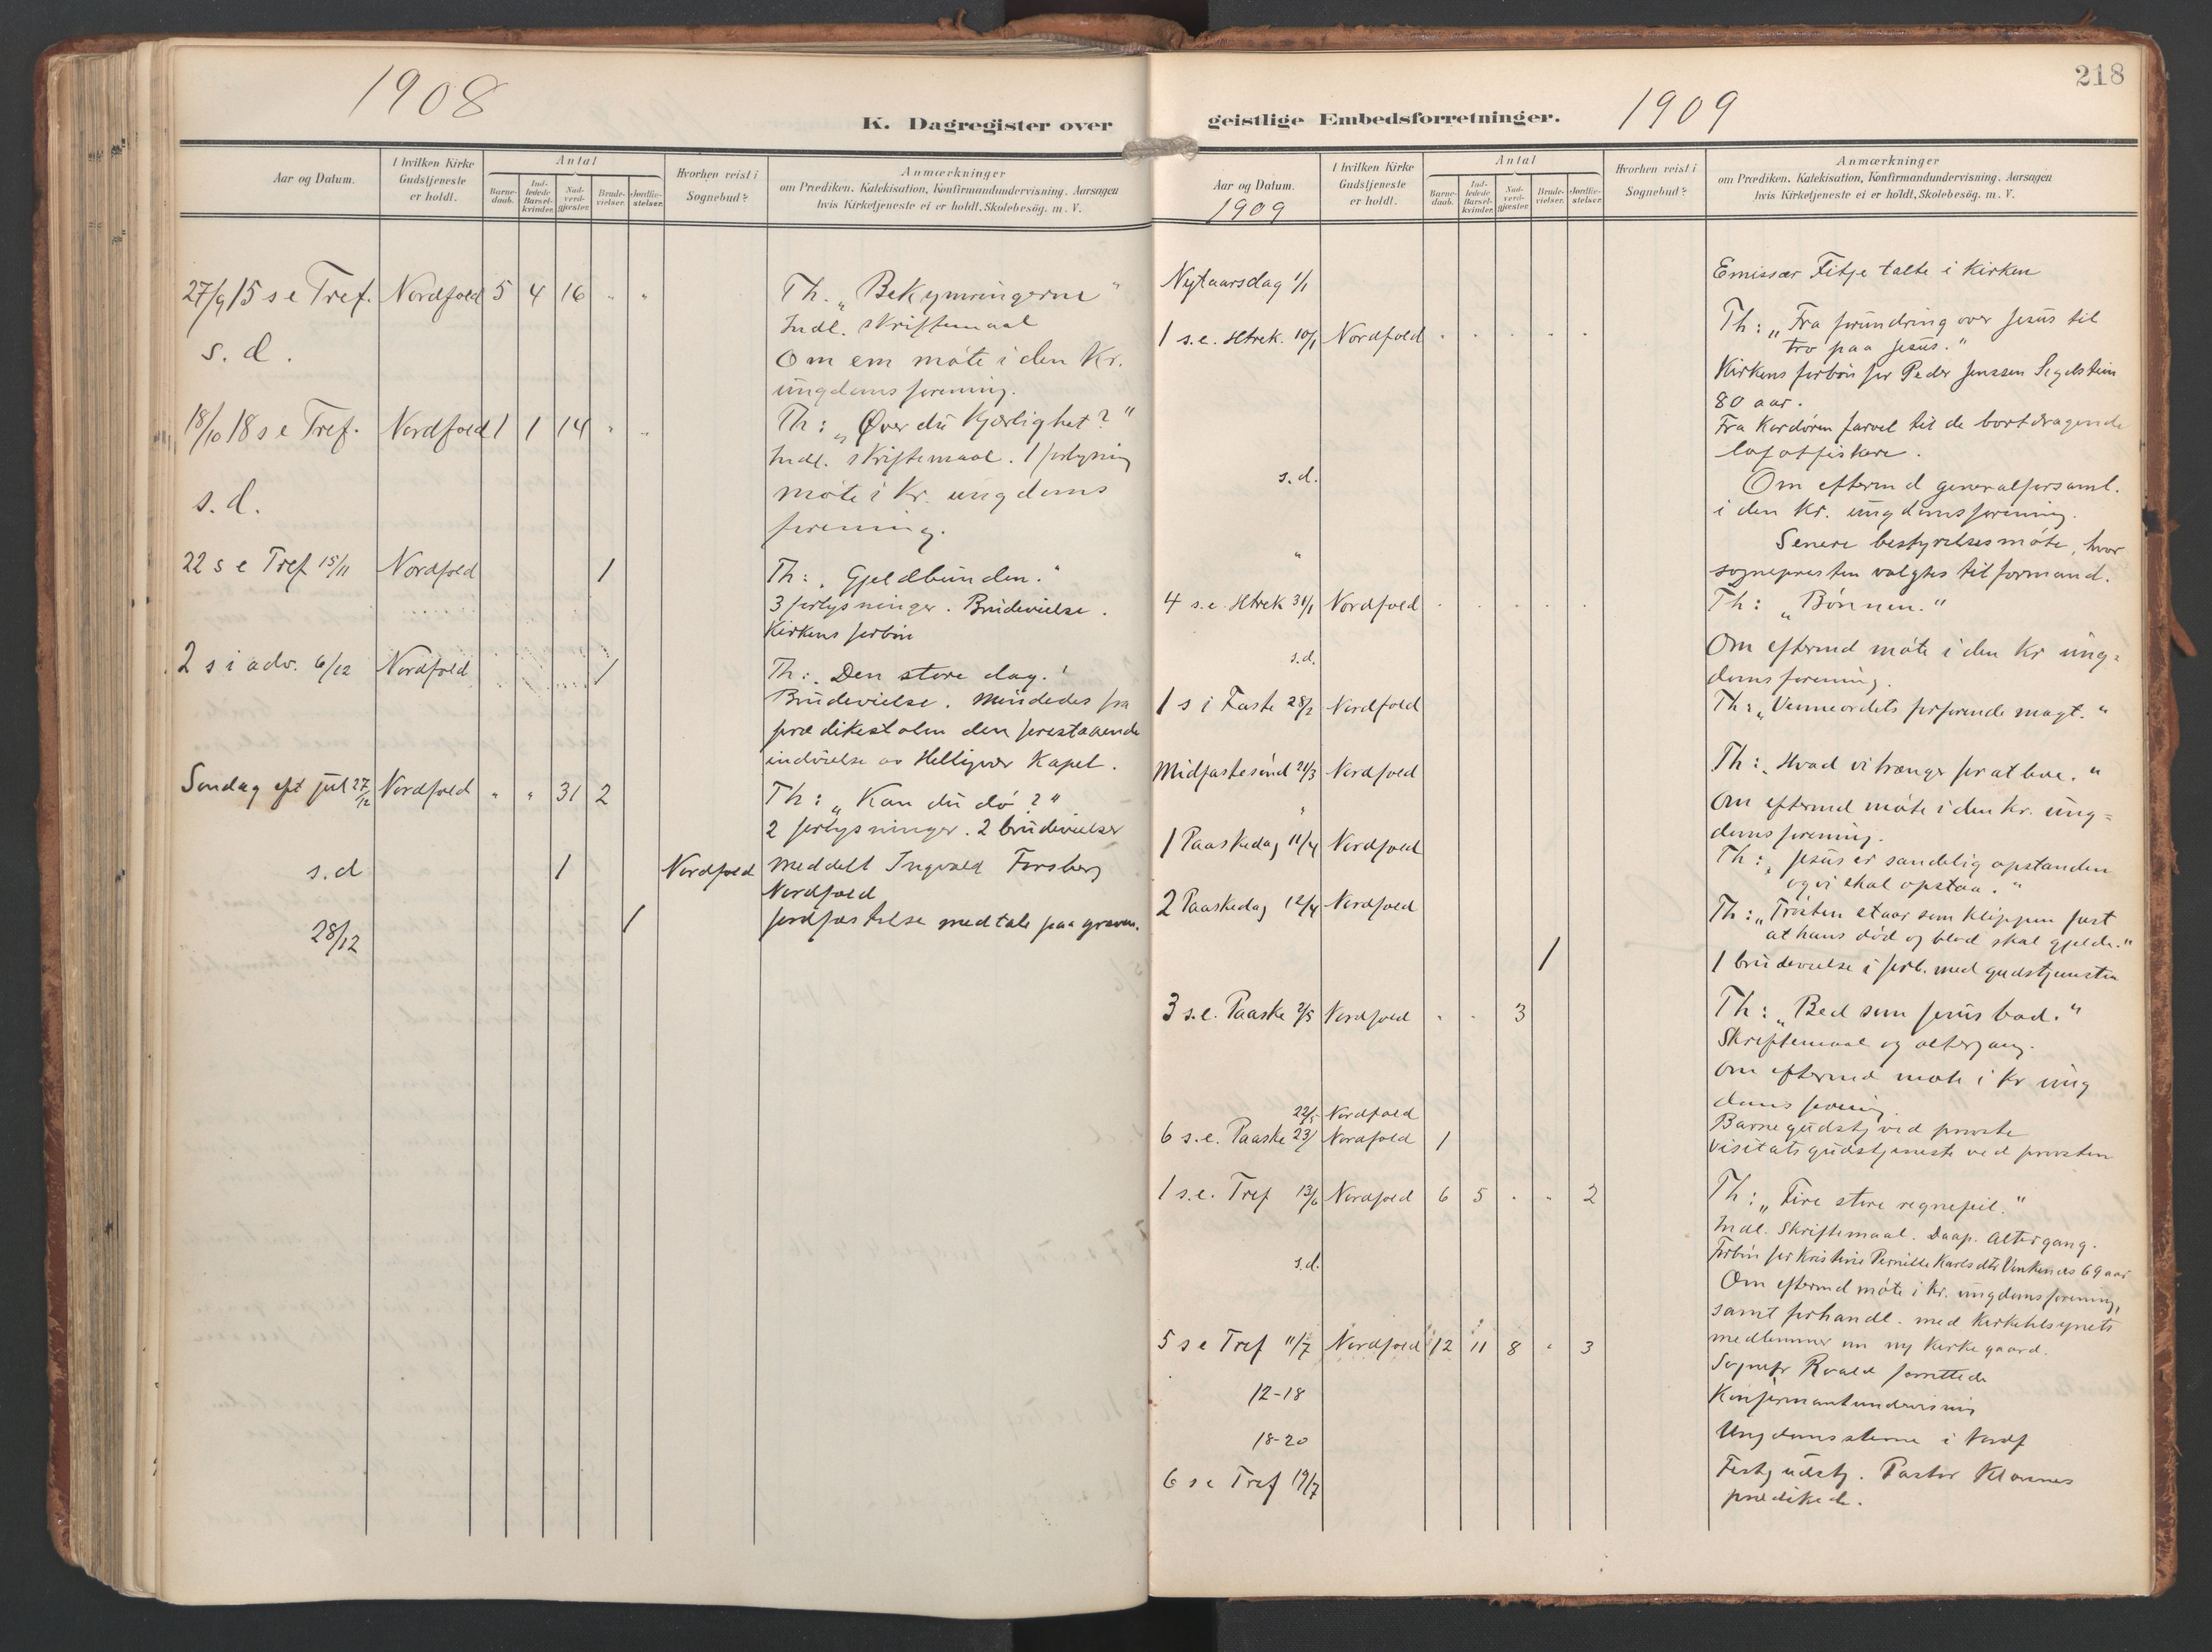 1908
K. Dagregister over
Aar og Datum.
I hvilken Kirke Gudstjeneste er holdt.
Antal
Barne-daab.
Ind-ledede Barsel-kvinder.
Nad-verd-gjæster.
Brude-vielser.
Jordfæ-stelser.
Hvorhen reist i Sognebud?
Anmærkninger
om Prædiken, Katekisation, Konfirmandundervisning, Aarsagen
hvis Kirketjeneste ei er holdt, Skolebesøg. m. V.
27/9 15 s e Tref. Nordfold 5 4 16 " " Th. „Bekymringerne"
Indl. skriftemaal
s. d. Om em møte i den Kr.
ungdomsforening.
18/10 18 s e Tref. Nordfold 1 1 14 " " Th: „Øver du Kjærlighet?"
Indl. skriftemaal. 1 forlysning
s. d. møte i Kr. ungdoms
forening.
22 s e Tref 15/11 Nordfold 1 Th: „Gjeldbunden."
3 forlysninger. Brudevielse.
Kirkens forbøn
2 s i adv. 6/12 Nordfold 1 Th: „Den store dag."
Brudevielse. Mindedes fra
prædikestolen den forestaaende
indvielse av Helligvær Kapel.
Søndag eft jul 27/12 Nordfold " " 31 2 Th: „Kan du dø?"
2 forlysninger. 2 brudevielser
s. d 1 Nordfold meddelt Ingvald Forsberg
Nordfold
28/12 1 Jordfæstelse med tale paa graven.
218
geistlige Embedsforretninger.
1909
Aar og Datum.
1909
I hvilken Kirke Gudstjeneste er holdt.
Antal
Barne-daab.
Ind-ledede Barsel-kvinder.
Nad-verd-gjæster.
Brude-vielser.
Jordfæ-stelser.
Hvorhen reist i Sognebud?
Anmærkninger
om Prædiken, Katekisation, Konfirmandundervisning, Aarsagen
hvis Kirketjeneste ei er holdt, Skolebesøg. m. V.
Nytaarsdag 1/1 Emissær Fitje talte i Kirken
1 s. e. Htrek. 10/1 Nordfold " " " " " Th: „Fra forundring over Jesus til
tro paa Jesus."
Kirkens forbøn for Peder Jenssen Segelstein
80 aar.
Fra Kordøren farvel til de bortdragende
lofotfiskere.
s. d. Om eftermd generalforsaml.
i den Kr. ungdomsforening.
" Senere bestyrelsesmøte, hvor
sognepresten valgtes til formand.
4 s. e. Htrek 31/1 Nordfold " " " " " Th: „Bønnen."
s. d. Om eftermd møte i den Kr ung=
domsforening.
1 s i Faste 28/2 Nordfold Th: „Venneordets forførende magt."
Midfastesønd 21/3 Nordfold Th: „Hvad vi trænger for at leve."
" Om eftermd møte i den kr. ung=
domsforening.
1 Paaskedag 11/4 Nordfold Th: „Jesus er sandelig opstanden
og vi skal opstaa."
2 Paaskedag 12/4 Nordfold Th: „Trøsten staar som klippen fast
at hans død og blod skal gjelde."
1 1 brudevielse i forb. med gudstjensten
3 s. e. Paaske 2/5 Nordfold " " 3 Th: „Bed som Jesus bad."
Skriftemaal og altergang.
Om eftermd møte i Kr ung
doms forening
22/5 Nordfold Barnegudstj ved provste
6 s. e. Paaske 23/ Nordfold 1 visitatsgudstjeneste ved provsten
1 s. e. Tref 13/6 Nordfold 6 5 " " 2 Th: „Fire store regnefeil."
Indl. Skriftemaal. Daap. Altergang.
Forbøn for Kristine Pernille Karlsdtr 69 aar
s. d. Om eftermd møte i Kr. ungdomsforening,
samt forhandl. med Kirketilsynets
medlemmer om ny Kirkegaard.
5 s e Tref 11/7 Nordfold 12 11 8 " 3 Sognepr Roald forrettede
12-18 Konfirmantundervisning
18-20 Ungdomsstevne i Nordf
6 s e Tref 19/7 Festgudstj. Pastor Klavnes
prædikede.